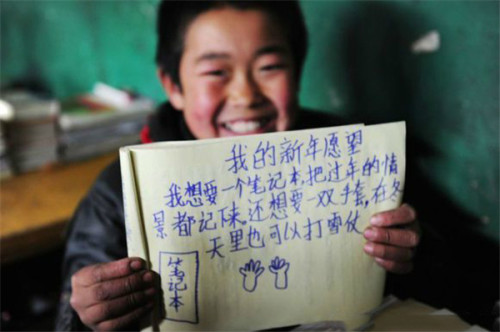 我的新年愿望
我想要一个笔记本,把过年的情
景都记下来,还想要一双手套,在冬
天里也可以打雪仗
笔记本